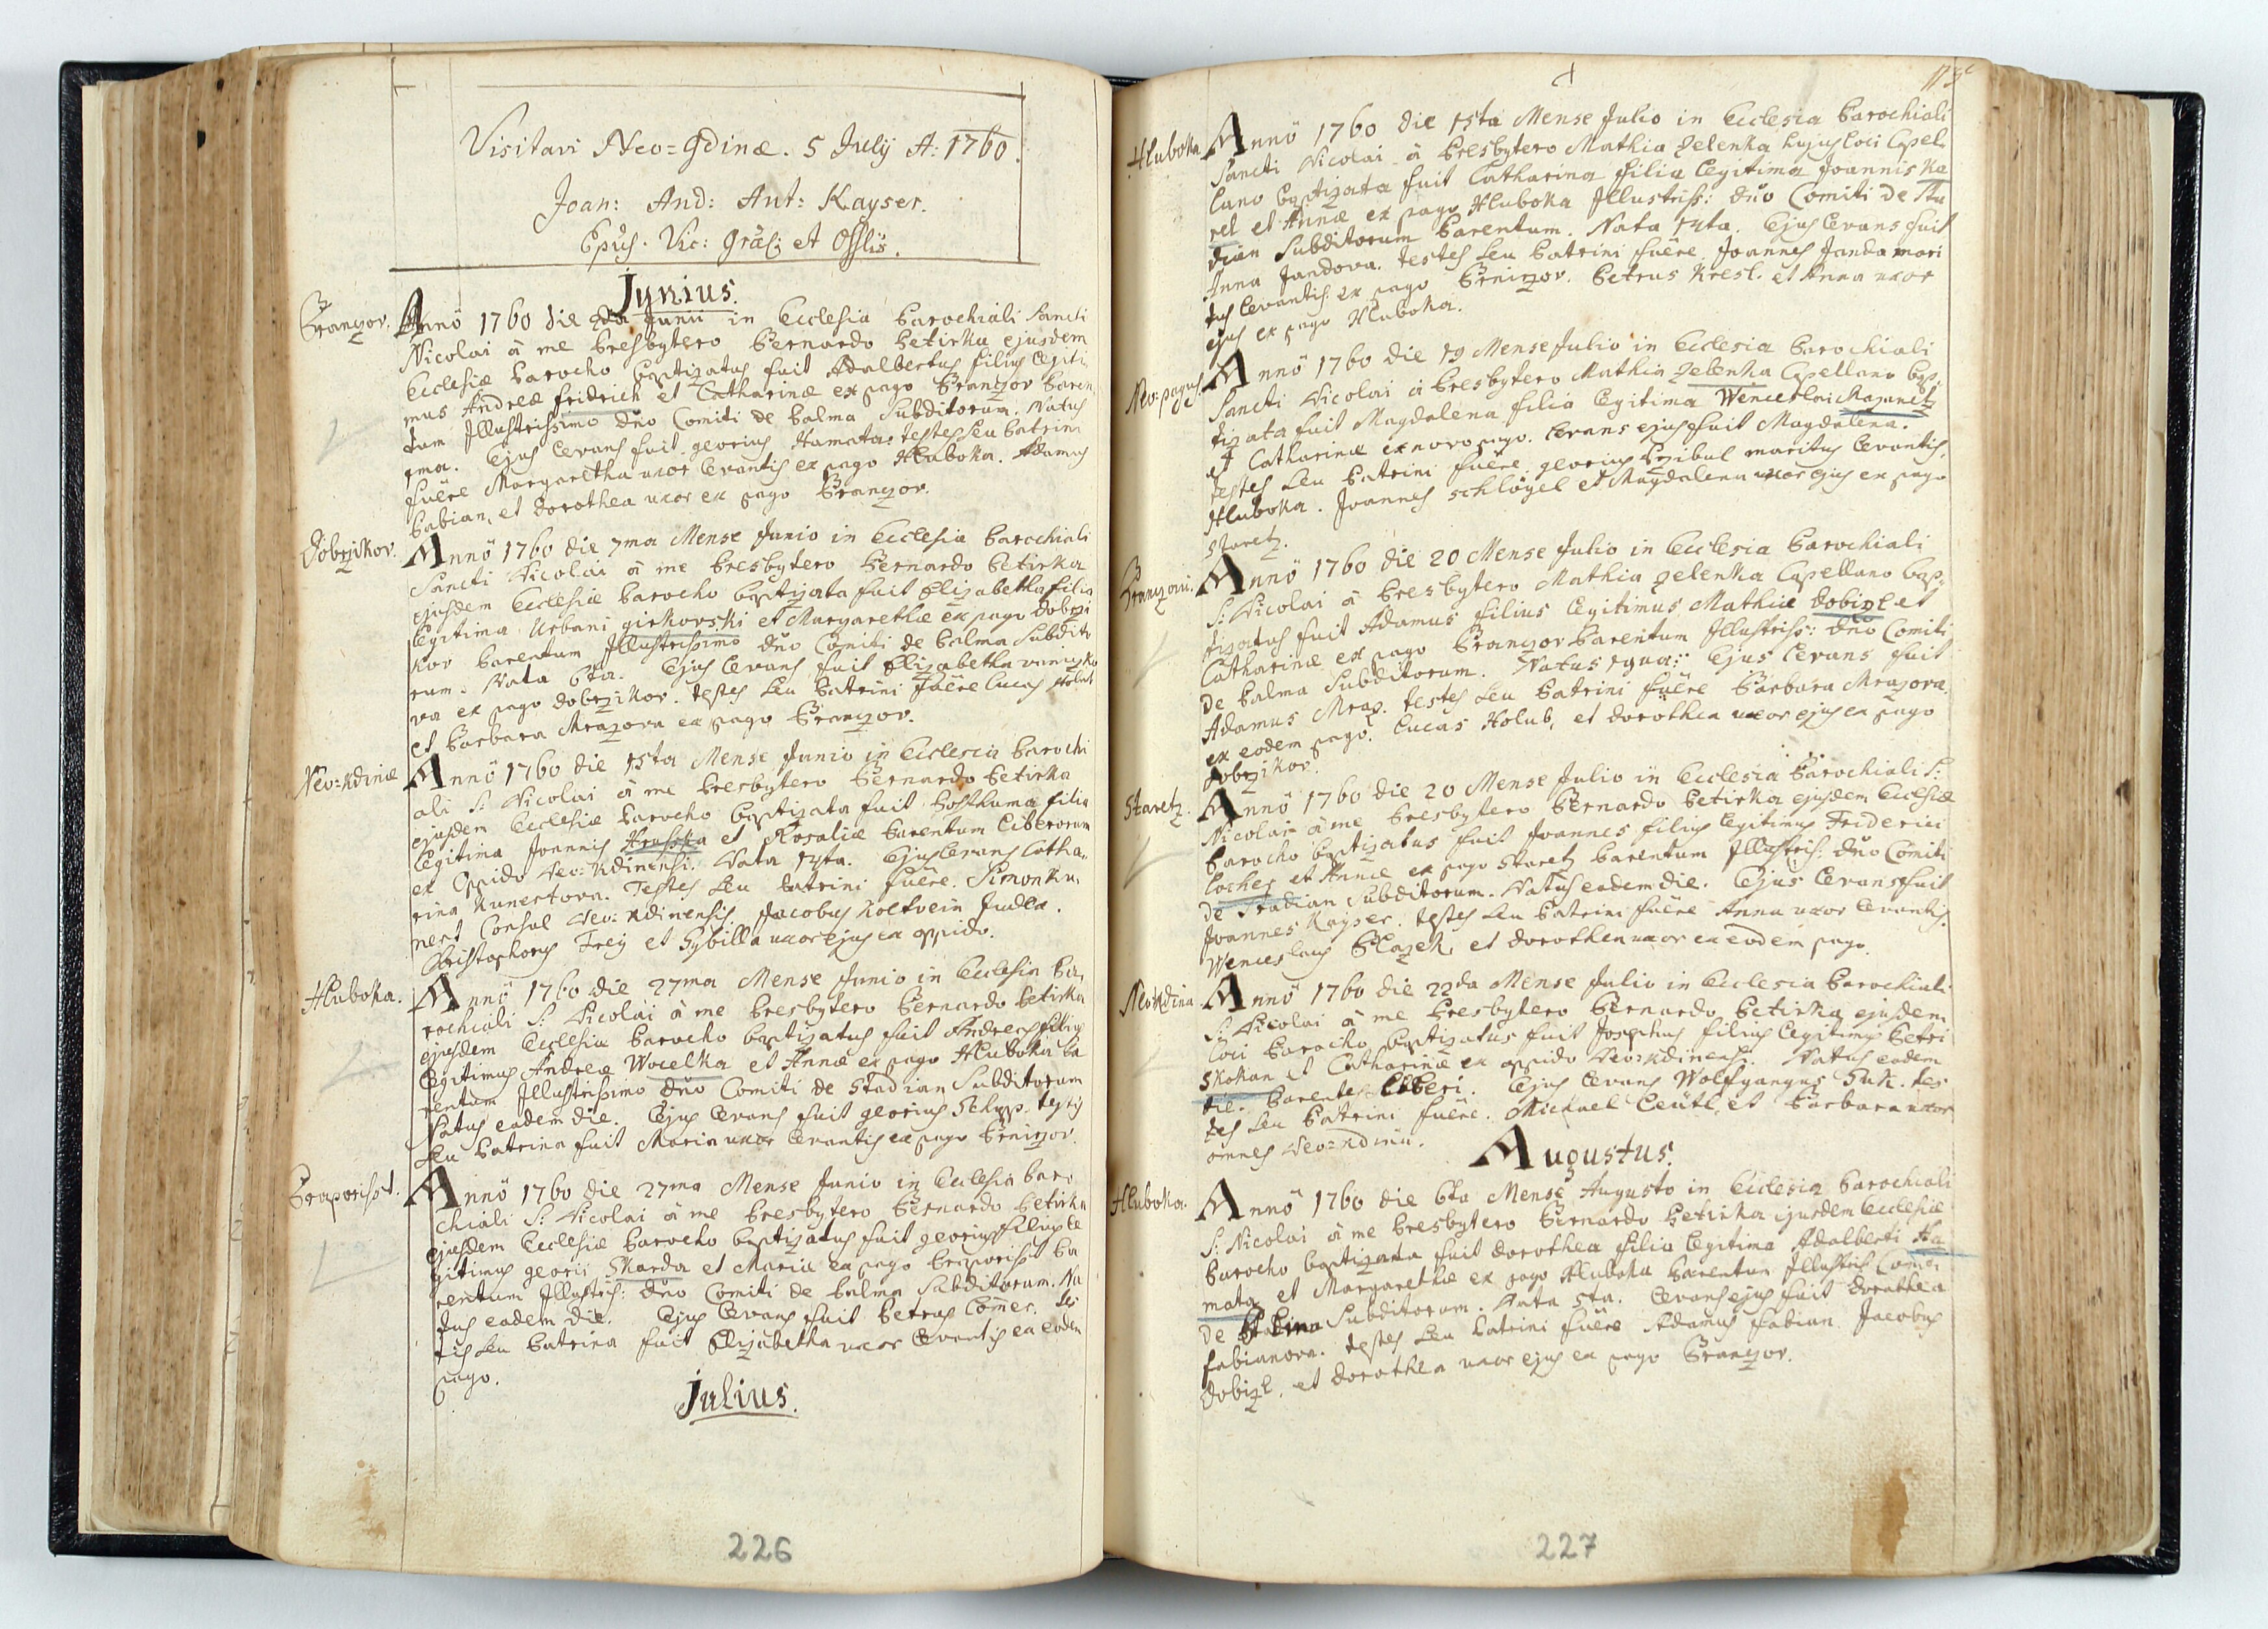 Visitavi Neo=Gdinæ. 5 July A: 1760.
Joan: And: Ant: Kayser.
Epūs. Vic: Grãl: et Offlis.
Junius.
Branzov.
Annõ 1760 die Junii in Ecclesia Parochiali Sancti
Nicolai â me Presbytero Bernardo Petirka ejusdem
Ecclesiæ Parocho baptizatus fuit Adalbertus filius legiti
mus Andreæ Fridrich et Catharinæ ex pago Branzov Paren
tum Illustrissimo Dño Comiti de Palma Subditorum. Natus
1ma. Ejus levans fuit georius Hamata. testes seu Patrini
fuêre Margaretha uxor levantis ex pago Hluboka. Adamus
Fabian, et Dorothea uxor ex pago Branzov.
Dobrzikov.
Annõ 1760 die 7ma Mense Junio in Ecclesia Parochiali
Sancti Nicolai â me Presbytero Bernardo Petirka
ejusdem Ecclesiæ Parocho baptizata fuit Elizabetha filia
legitima Urbani girkovski et Margarethæ ex pago Dobrzi
kov Parentum Illustrissimo Dño Comiti de Palma Subdito
rum. Nata 6ta. Ejus levans fuit Elizabetha
va ex pago Dobrzikov. testes seu Patrini fuêre Lucas Holub
et Barbara Mrazova ex pago Branzov.
Neo=Kdinæ
Annõ 1760 die 15ta Mense Junio in Ecclesia Parochi
ali S: Nicolai â me Presbytero Bernardo Petirka
ejusdem Ecclesiæ Parocho baptizata fuit Posthuma filia
legitima Joannis Hrusska et Rosaliæ Parentum Liberorum
ex Oppido Neo=Kdinensi. Nata 14ta. Ejus levans Catha=
rina Kunertova. Testes seu Patrini fuêre. Simon Ku
nert Consul Neo=Kdinensis. Jacobus Koltvein Judex.
Christophorus Frey et Sybilla uxor ejus ex oppido.
Hluboka.
Annõ 1760 die 27ma Mense Junio in Ecclesia Pa=
rochiali S: Nicolai â me Presbytero Bernardo Petirka
ejusdem Ecclesiæ Parocho baptizatus fuit Andreas filius
legitimus Andreæ Wocelka et Annæ ex pago Hluboka Pa
rentum Illustrissimo Dño Comiti de Stadian Subditorum
Natus eadem die. Ejus levans fuit georius Schupp. testis
seu Patrina fuit Maria uxor levantis ex pago Brnirzov.
Praporisst.
Annõ 1760 die 27ma Mense Junio in Ecclesia Paro
chiali S: Nicolai â me Presbytero Bernardo Petirka
ejusdem Ecclesiæ Parocho baptizatus fuit georius filius le
gitimus georii Skarda et Mariæ ex pago Praporisst Pa
rentum Illustris: Dño Comiti de Palma Subditorum. Na
tus eadem die. Ejus levans fuit Petrus Comer. tes
tis seu Patrina fuit Elizabetha uxor levantis ex eodem
pago.
Julius.
226
Hluboka
Annõ 1760 die 15ta Mense Julio in Ecclesia Parochiali
Sancti Nicolai â Presbytero Mathia Zelenka hujus loci Capel
lano baptizata fuit Catharina filia legitima Joannis Ka
rel et Annæ ex pago Hluboka Illustriss: Dño Comiti de Sta
dian Subditorum Parentum. Nata 14ta. Ejus levans fuit
Anna Jandova. testes seu Patrini fuêre Joannes Janda mari
tus levantis ex pago Brnirzov. Petrus Kresl. et Anna uxor
ejus ex pago Hluboka.
Neo=pagus.
Annõ 1760 die 19 Mense Julio in Ecclesia Parochiali
Sancti Nicolai â Presbytero Mathia Zelenka Capellano bap=
tizata fuit Magdalena filia legitima Wenceslai Mazanetz
et Catharinæ ex novo pago. levans ejus fuit Magdalena.
testes seu Patrini fuêre georius Przibul maritus levantis.
Hluboka. Joannes Schlögel et Magdalena uxor ejus ex pago
Staretz.
Annõ 1760 die 20 Mense Julio in Ecclesia Parochiali
S: Nicolai â Presbytero Mathia Zelenka Capellano bap=
tizatus fuit Adamus filius legitimus Mathiæ Dobizl et
Catharinæ ex pago Branzov Parentum Illustriss: Dño Comiti
de Palma Subditorum. Natus Ejus levans fuit
Adamus Mraz. testes seu Patrini fuêre Barbara Mrazova
ex eodem pago. Lucas Holub, et Dorothea uxor ejus ex pago
Dobrzikov.
Staretz.
Annõ 1760 die 20 Mense Julio in Ecclesia Parochiali S:
Nicolai â me Presbytero Bernardo Petirka ejusdem Ecclesiæ
Parocho baptizatus fuit Joannes filius legitimus Friderici
Locher et Annæ ex pago Staretz Parentum Illustris: Dño Comiti
de Stadian Subditorum. Natus eadem die. Ejus levans fuit
Joannes Kayser. testes seu Patrini fuêre Anna uxor levantis.
Wenceslaus Blazek, et Dorothea uxor ex eodem pago.
Neo=Kdina
Annõ 1760 die 22da Mense Julio in Ecclesia Parochiali
S: Nicolai â me Presbytero Bernardo Petirka ejusdem
loci Parocho baptizatus fuit Josephus filius legitimus Petri
Skokan et Catharinæ ex oppido Neo=Kdinensi. Natus eadem
die. Parentes Liberi. Ejus levans Wolfgangus Puk. tes
tes seu Patrini fuêre. Michael Leutl, et Barbara uxor
omnes Neo=Kdinii.
Augustus.
Hluboka.
Annõ 1760 die 6ta Mense Augusto in Ecclesia Parochiali
S: Nicolai â me Presbytero Bernardo Petirka ejusdem Ecclesiæ
Parocho baptizata fuit Dorothea filia legitima Adalberti Ha
mata et Margarethæ ex pago Hluboka Parentum Illustris: Comiti
de Subditorum. Nata 5ta. levans ejus fuit Dorothea
Fabianova. testes seu Patrini fuêre Adamus Fabian. Jacobus
Dobizl, et Dorothea uxor ejus ex pago Branzov.
227